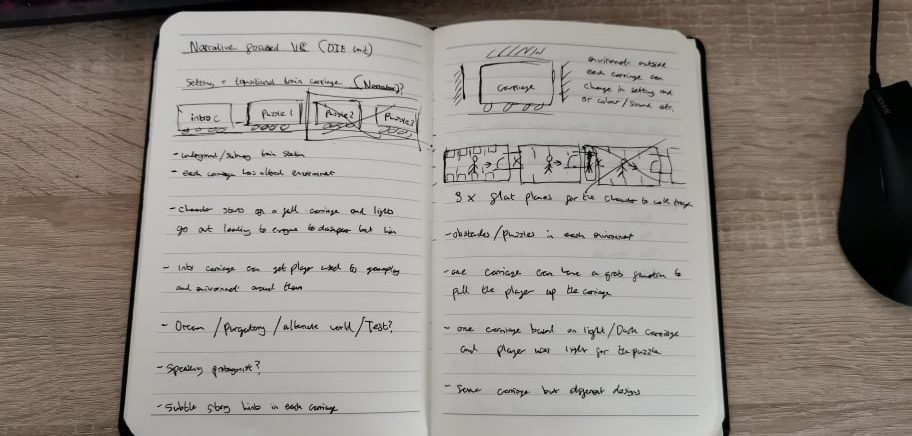 Narrative focused VR (DIE unit)
Setting = train carriage (Narrator)?
intro c
Puzzle 1
Puzzle 2
Puzzle 3
- underground/subway train station
- each carriage has altered environment
- Character starts on a full carriage and lights
go out leading to everyone to disappear but him
- Intro carriage can get player used to gameplay
and environment around them
- Dream / Purgatory / alternate world / Test?
- Speaking protagonist?
- Subtle story hints in each carriage
Carriage
environment outside
each carriage can
change in setting and
or colour / sound etc.
3 x flat planes for the character to walk through
- obstacles / puzzles in each environment
- one carriage can have a grab function to
pull the player up the carriage
- one carriage based on light / Dark carriage
and player uses light for the puzzle
- Same carriage but different designs